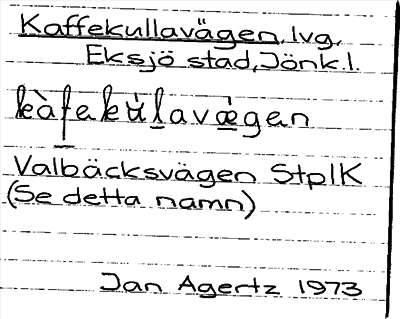 Kaffekullavägen, lvg,
Eksjö stad, Jönk.l.
kàfakùlavæ̀gan
Valbäcksvägen StplK
(Se detta namn)
Jan Agertz 1973